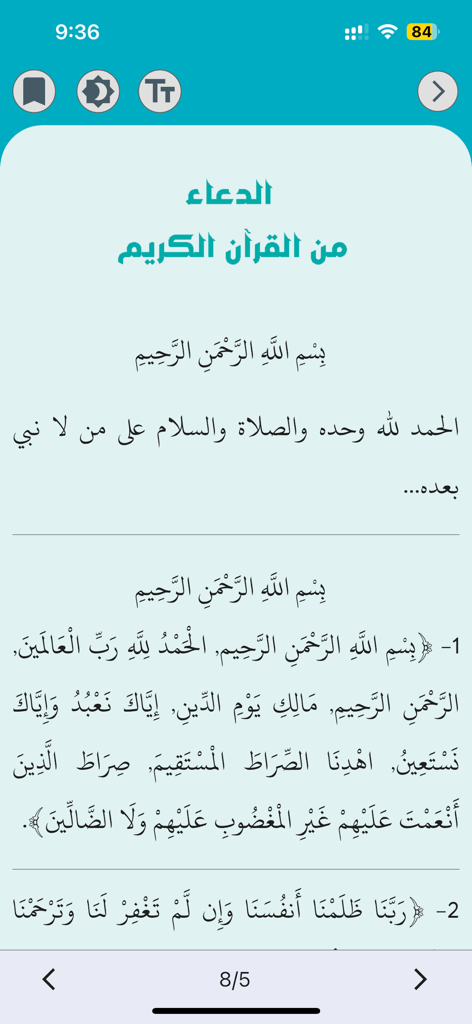 9:36
84
الدعاء
من القرآن الكريم
بِسْمِ اللَّهِ الرَّحْمَنِ الرَّحِيمِ
الحمد لله وحده والصلاة والسلام على من لا نبي
بعده...
بِسْمِ اللَّهِ الرَّحْمَنِ الرَّحِيمِ
1- ﴿بِسْمِ اللَّهِ الرَّحْمَنِ الرَّحِيم, الْحَمْدُ لِلَّهِ رَبِّ الْعَالَمِينَ,
الرَّحْمَنِ الرَّحِيمِ, مَالِكِ يَوْمِ الدِّينِ, إِيَّاكَ نَعْبُدُ وَإِيَّاكَ
نَسْتَعِينُ, اهْدِنَا الصِّرَاطَ الْمُسْتَقِيمَ, صِرَاطَ الَّذِينَ
أَنْعَمْتَ عَلَيْهِمْ غَيْرِ الْمَغْضُوبِ عَلَيْهِمْ وَلَا الضَّالِّينَ﴾.
2- ﴿رَبَّنَا ظَلَمْنَا أَنفُسَنَا وَإِن لَّمْ تَغْفِرْ لَنَا وَتَرْحَمْنَا
8/5